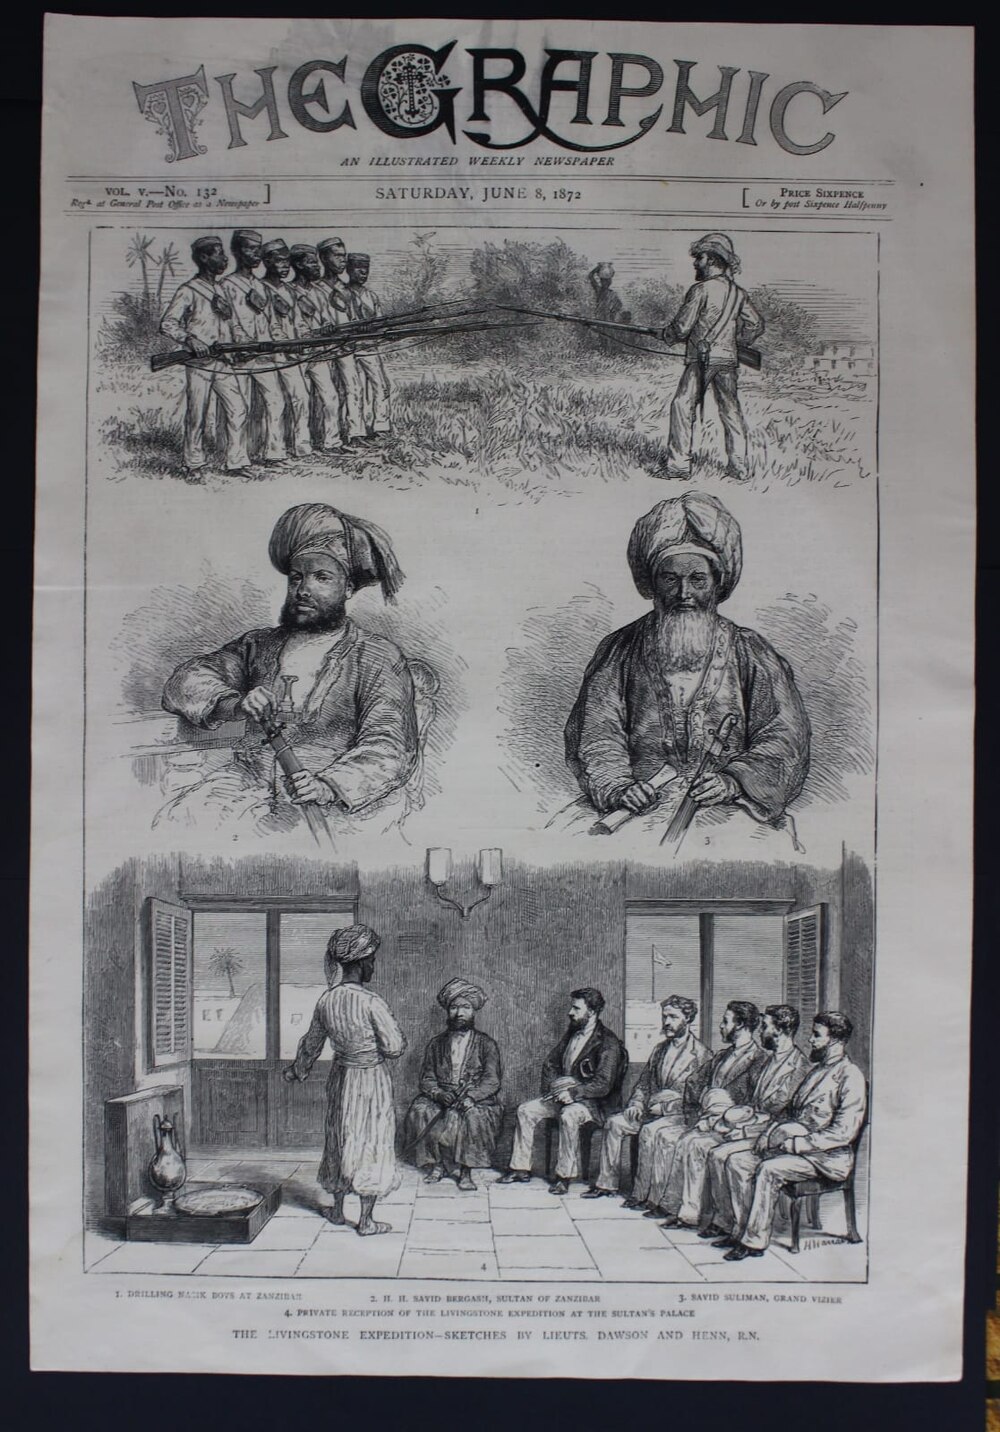 THE GRAPHIC
AN ILLUSTRATED WEEKLY NEWSPAPER
VOL. V.—No. 132
Regd. at General Post Office as a Newspaper
SATURDAY, JUNE 8, 1872
PRICE SIXPENCE
Or by post Sixpence Halfpenny
1
2
3
4
1. DRILLING NASIK BOYS AT ZANZIBAR
2. H. H. SAYID BERGASH, SULTAN OF ZANZIBAR
3. SAYID SULIMAN, GRAND VIZIER
4. PRIVATE RECEPTION OF THE LIVINGSTONE EXPEDITION AT THE SULTAN'S PALACE
THE LIVINGSTONE EXPEDITION—SKETCHES BY LIEUTS. DAWSON AND HENN, R.N.